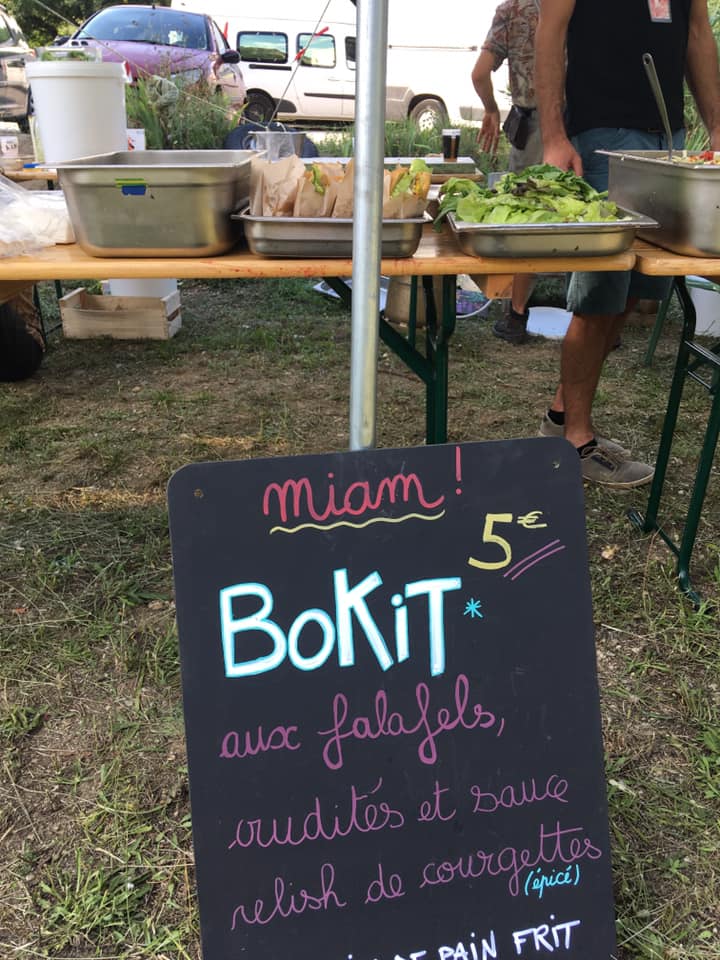 miam !
5€
BoKiT*
aux falafels,
crudités et sauce
relish de courgettes
(épicé)
DE PAIN FRIT